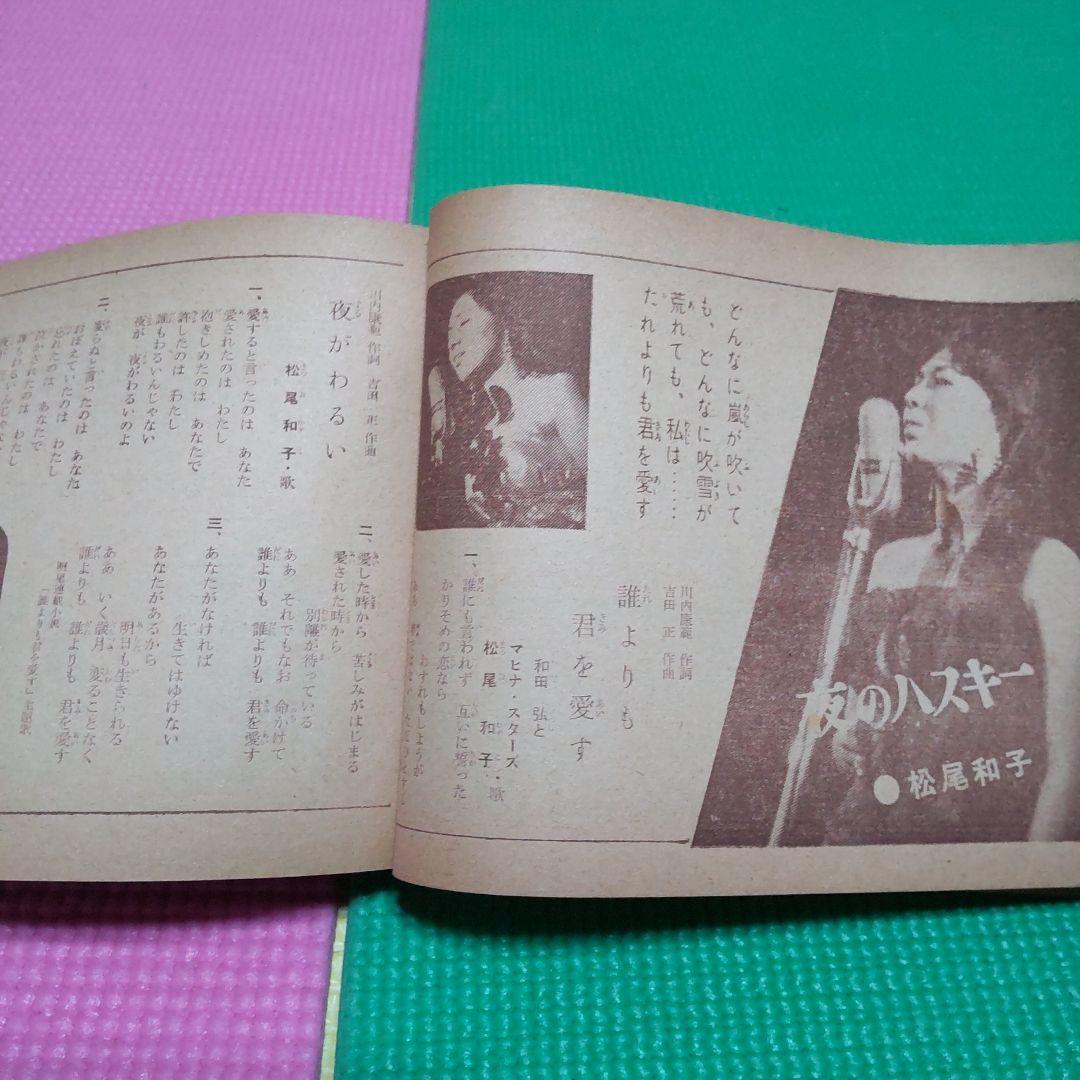 夜のハスキー
●松尾和子
どんなに嵐が吹いて
も、どんなに吹雪が
荒れても、私は……
たれよりも君を愛す
川内康範 作詞
吉田 正 作曲
誰よりも
君を愛す
和田 弘と
マヒナ・スターズ
松尾和子・歌
一、誰にも言われず 互いに誓った
かりそめの恋なら
わすれもしようが
二、愛した時から 苦しみがはじまる
愛された時から
別離が待っている
ああ それでもなお 命かけて
誰よりも 誰よりも 君を愛す
三、あなたがなければ
生きてはゆけない
あなたがあるから
明日も生きられる
ああ いく歳月 変ることなく
誰よりも 誰よりも 君を愛す
明星連載小説
「誰よりも君を愛す」主題歌
川内康範 作詞 吉田 正 作曲
夜がわるい
松尾和子・歌
一、愛すると言ったのは あなた
愛されたのは わたし
抱きしめたのは あなたで
許したのは わたし
誰もわるいんじゃない
夜が 夜がわるいのよ
二、変らぬと言ったのは あなた
おぼえていたのは わたし
忘れたのは あなたで
泣かされたのは わたし
誰もわるいんじゃない
夜が